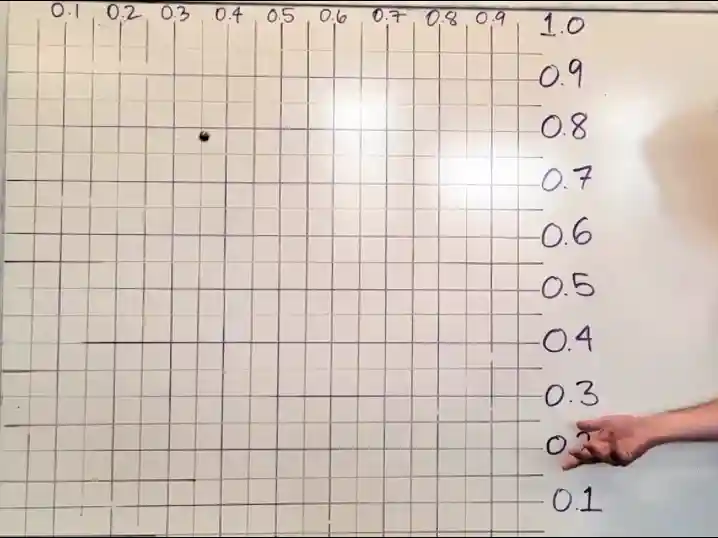 0.1 0.2 0.3 0.4 0.5 0.6 0.7 0.8 0.9
1.0
0.9
0.8
0.7
0.6
0.5
0.4
0.3
0.1